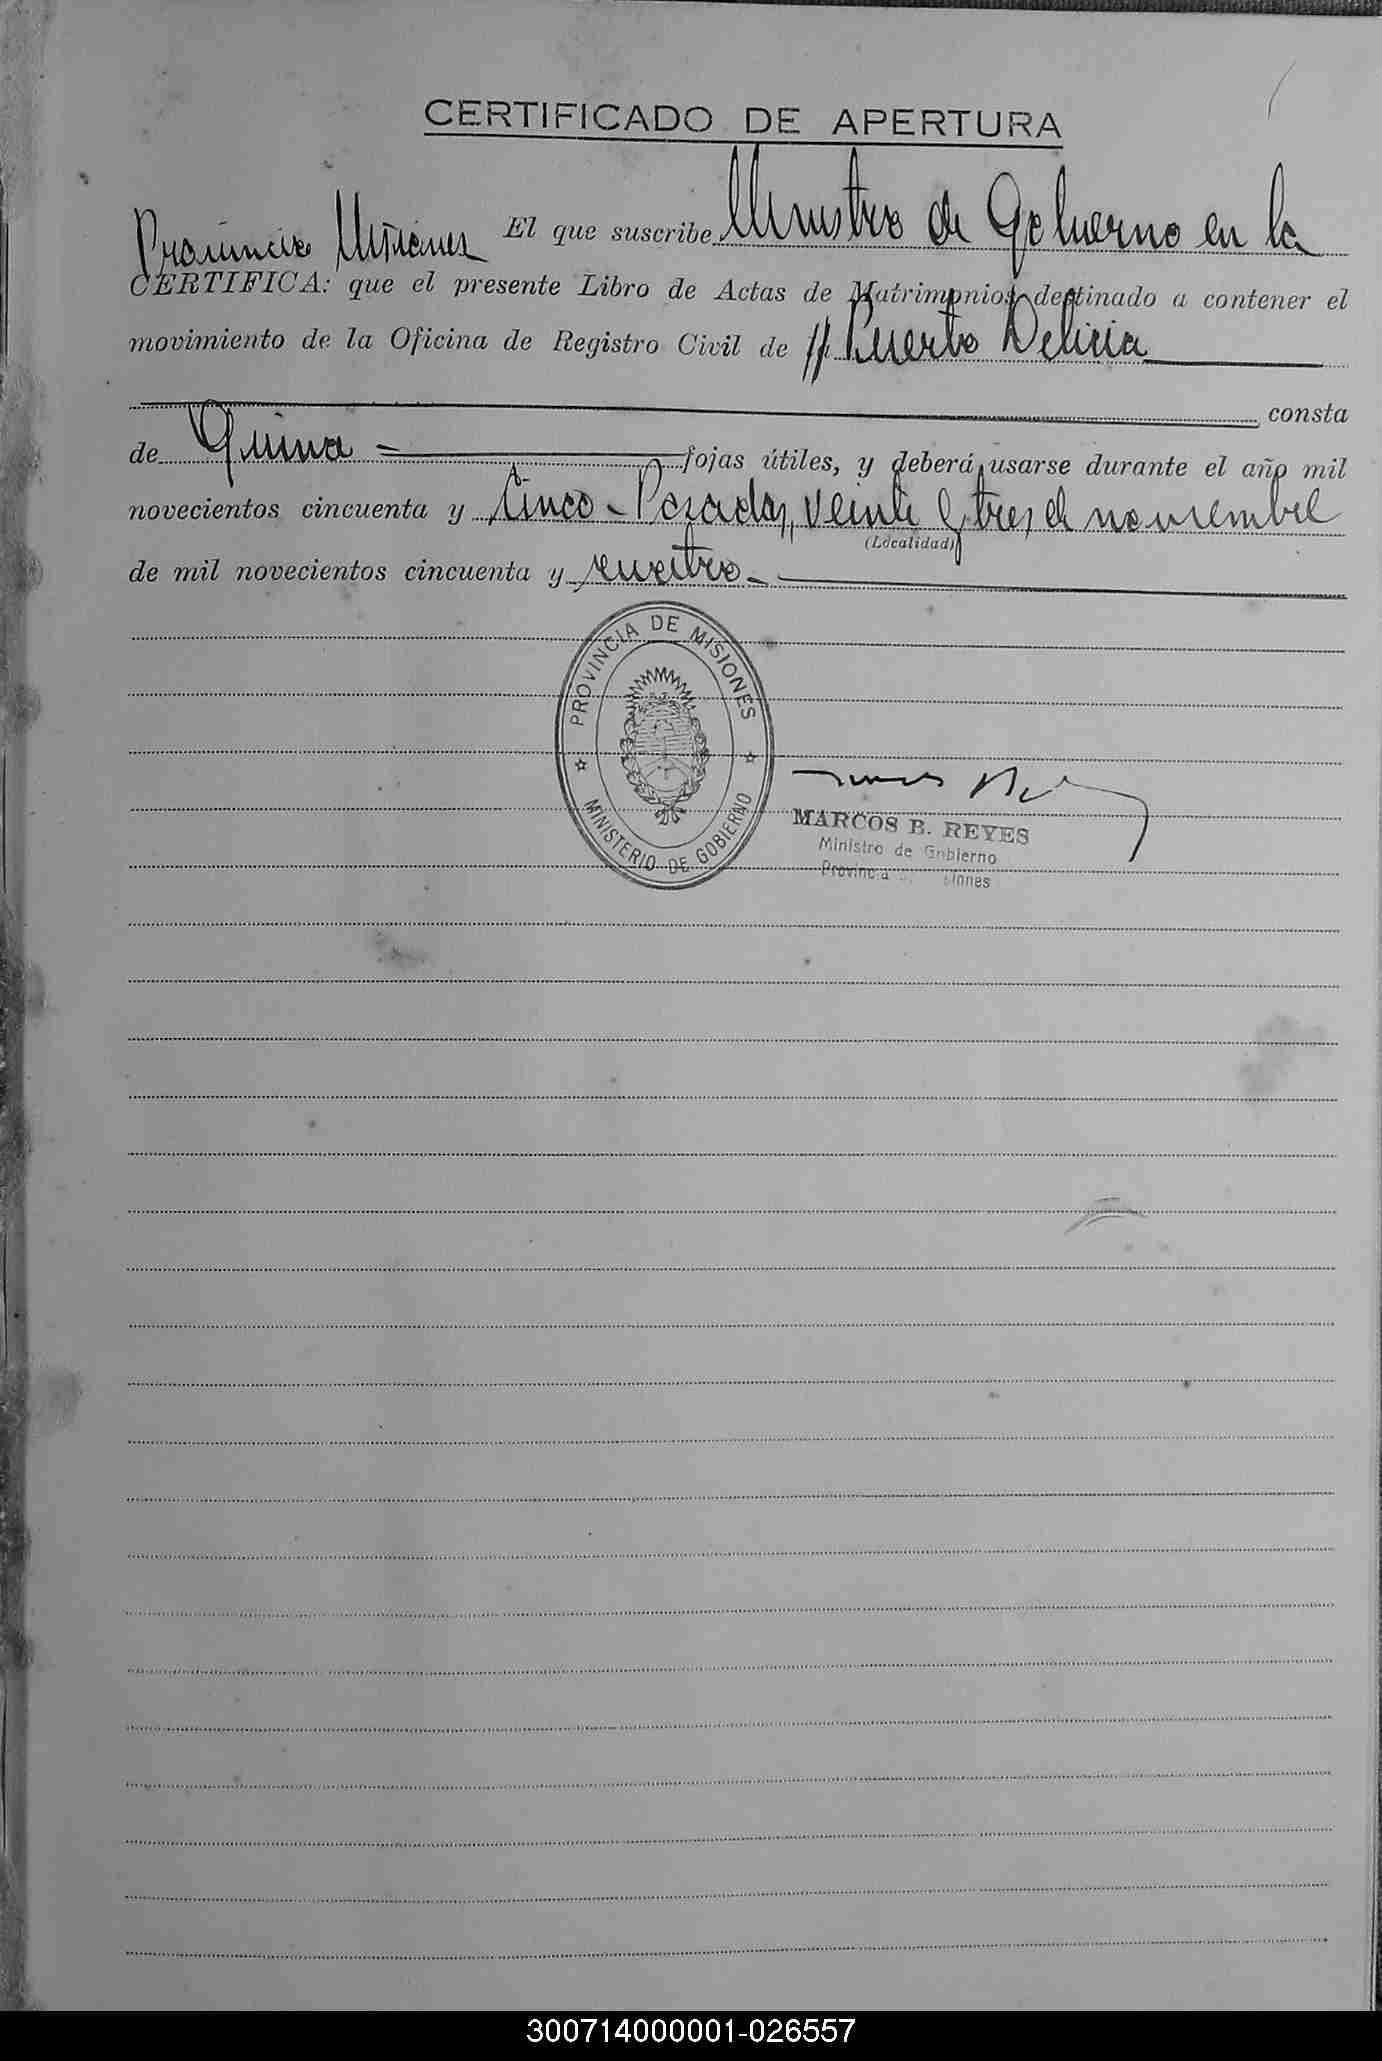 CERTIFICADO DE APERTURA
El que suscribe Ministro de Gobierno en la
Provincia Misiones
CERTIFICA: que el presente Libro de Actas de Matrimonios, destinado a contener el
movimiento de la Oficina de Registro Civil de // Puerto Delicia
consta
de fojas útiles, y deberá usarse durante el año mil
novecientos cincuenta y Cinco - Posadas, veinte y tres de noviembre
(Localidad)
de mil novecientos cincuenta y cuatro -
PROVINCIA DE MISIONES
MINISTERIO DE GOBIERNO
MARCOS B. REYES
Ministro de Gobierno
300714000001-026557